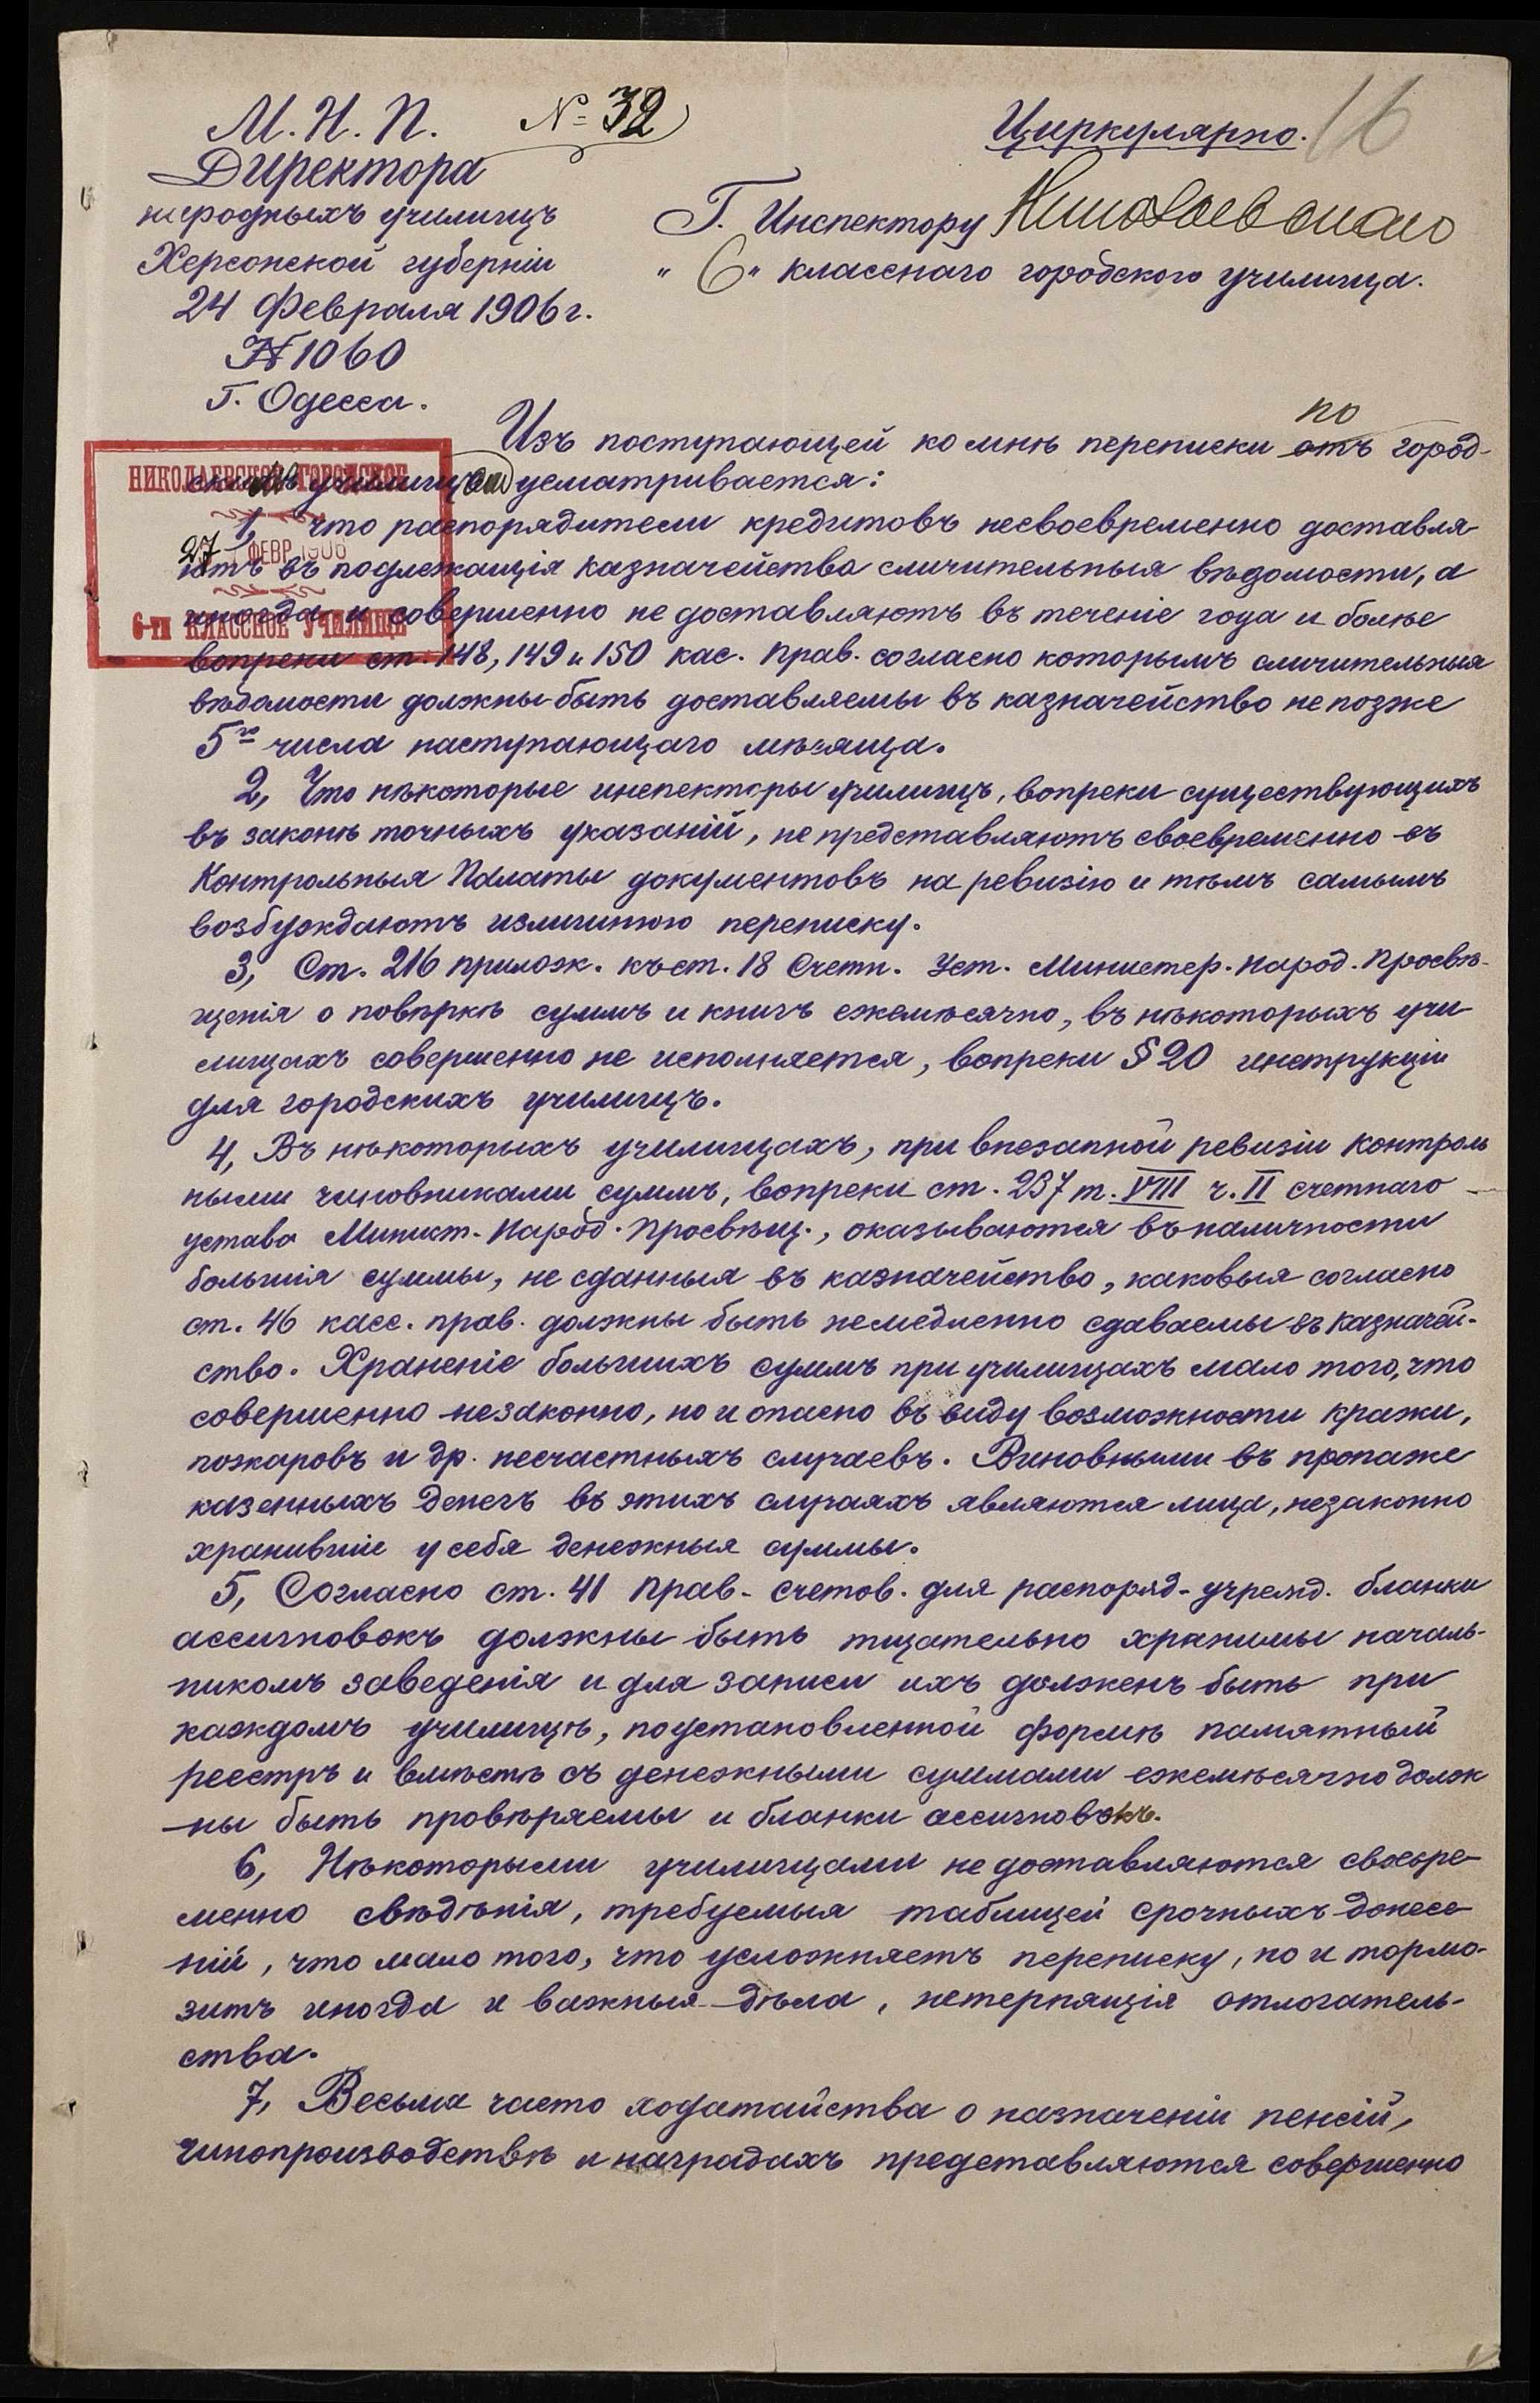 М. Н. П. № 32
Директора
народныхъ училищъ
Херсонской губерніи
24 Февраля 1906 г.
№ 1060
Г. Одесса.
Циркулярно. 16
Г. Инспектору Николаевскаго
" 6 " класснаго городского училища.
НИКОЛАЕВСКОЕ ГОРОДСКОЕ
27 ФЕВР. 1906
6-ти КЛАССНОЕ УЧИЛИЩЕ
по
Изъ поступающей ко мнѣ переписки отъ город-
скимъ училищамъ усматривается:
1, что распорядители кредитовъ несвоевременно доставля-
ютъ въ подлежащія казначейства сличительныя вѣдомости, а
иногда и совершенно не доставляютъ въ теченіе года и болѣе
вопреки ст. 148, 149 и 150 кас. прав. согласно которымъ сличительныя
вѣдомости должны быть доставляемы въ казначейство не позже
5го числа наступающаго мѣсяца.
2, Что нѣкоторые инспекторы училищъ, вопреки существующихъ
въ законѣ точныхъ указаній, не представляютъ своевременно въ
Контрольныя Палаты документовъ на ревизію и тѣмъ самымъ
возбуждаютъ излишнюю переписку.
3, Ст. 216 прилож. къ ст. 18 Счетн. Уст. Министер. Народ. Просвѣ-
щенія о повѣркѣ суммъ и книгъ ежемѣсячно, въ нѣкоторыхъ учи-
лищахъ совершенно не исполняется, вопреки § 20 инструкціи
для городскихъ училищъ.
4, Въ нѣкоторыхъ училищахъ, при внезапной ревизіи контроль
ными чиновниками суммъ, вопреки ст. 237 т. VIII ч. II счетнаго
устава Минист. Народ. Просвѣщ., оказываются въ наличности
большія суммы, не сданныя въ казначейство, каковыя согласно
ст. 46 касс. прав. должны быть немедленно сдаваемы въ казначей-
ство. Храненіе большихъ суммъ при училищахъ мало того, что
совершенно незаконно, но и опасно въ виду возможности кражи,
пожаровъ и др. несчастныхъ случаевъ. Виновными въ пропаже
казенныхъ денегъ въ этихъ случаяхъ являются лица, незаконно
хранившіе у себя денежныя суммы.
5, Согласно ст. 41 прав. счетов. для распоряд. учрежд. бланки
ассигновокъ должны быть тщательно хранимы началь-
никомъ заведенія и для записи ихъ долженъ быть при
каждомъ училищѣ, по установленной формѣ памятный
реестръ и вмѣстѣ съ денежными суммами ежемѣсячно долж
ны быть провѣряемы и бланки ассигновокъ.
6, Нѣкоторыми училищами не доставляются своевре-
менно свѣдѣнія, требуемыя таблицей срочныхъ донесе-
ній, что мало того, что усложняетъ переписку, но и тормо-
зитъ иногда и важныя дѣла, нетерпящія отлогатель-
ства.
7, Весьма часто ходатайства о назначеніи пенсій,
чинопроизводствѣ и наградахъ представляются совершенно